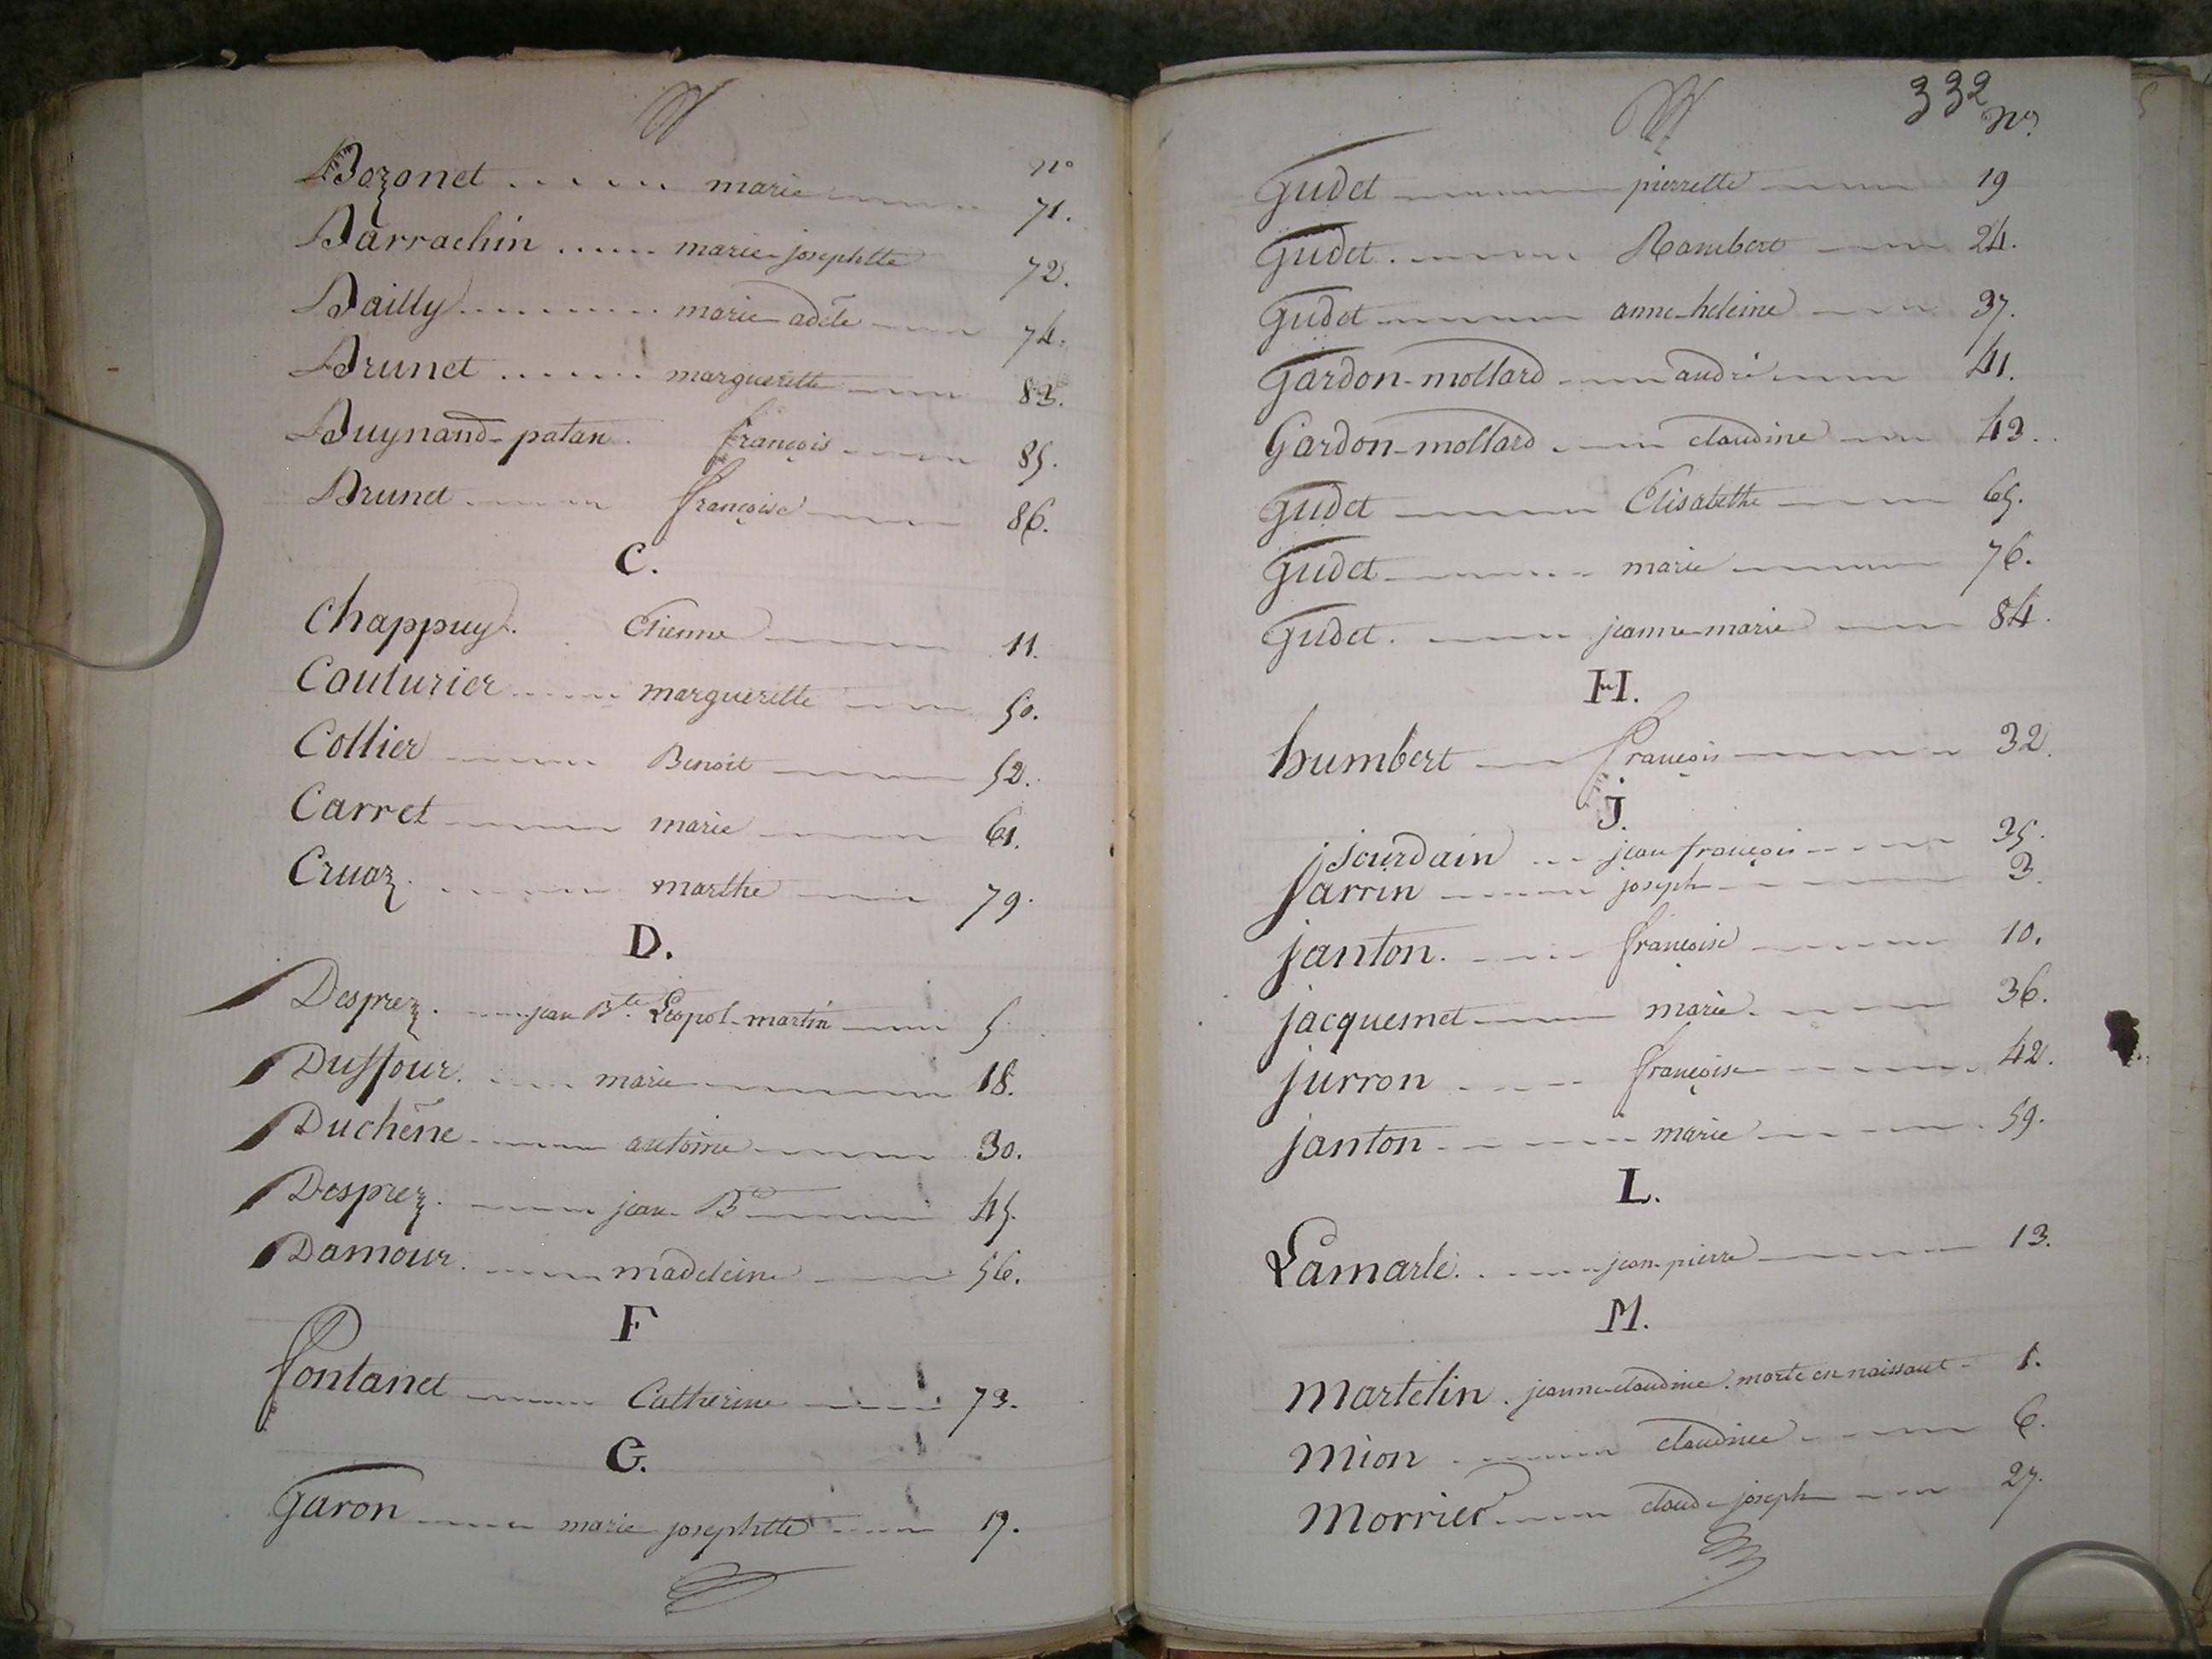 n°
Bozonet marie 71.
Barrachin marie josephtte 72.
Bailly marie adèle 74.
Brunet marguerette 83.
Buynand-patan. françois 85.
Brunet françoise 86.
C.
Chappuy. Etienne 11.
Couturier marguerette 50.
Collier Benoit 52.
Carret marie 61.
Cruaz. marthe 79.
D.
Desprez. jean Bte Léopol-martin 5.
Duffour. marie 18.
Duchêne antoine 30.
Desprez. jean Bte 45.
Damour. madeleine 56.
F
fontanet Catherine 73.
G.
Garon marie josephtte 17.
332
n°
Gudet pierrette 19
Gudet. Rambert 24.
Gudet anne-heleine 37.
Gardon-mollard andré 41.
Gardon-mollard claudine 43.
Gudet Elisabethe 65.
Gudet marie 76.
Gudet. jeanne-marie 84.
H.
humbert françois 32.
J.
jourdain jean françois 35.
jarrin joseph 3.
janton. françoise 10.
jacquemet marie 36.
jurron françoise 42.
janton marie 59.
L.
Lamarle. jean-pierre 13.
M.
martelin. jeanne-claudine. morte en naissant 1.
mion claudine 6.
morrier claude-joseph 27.